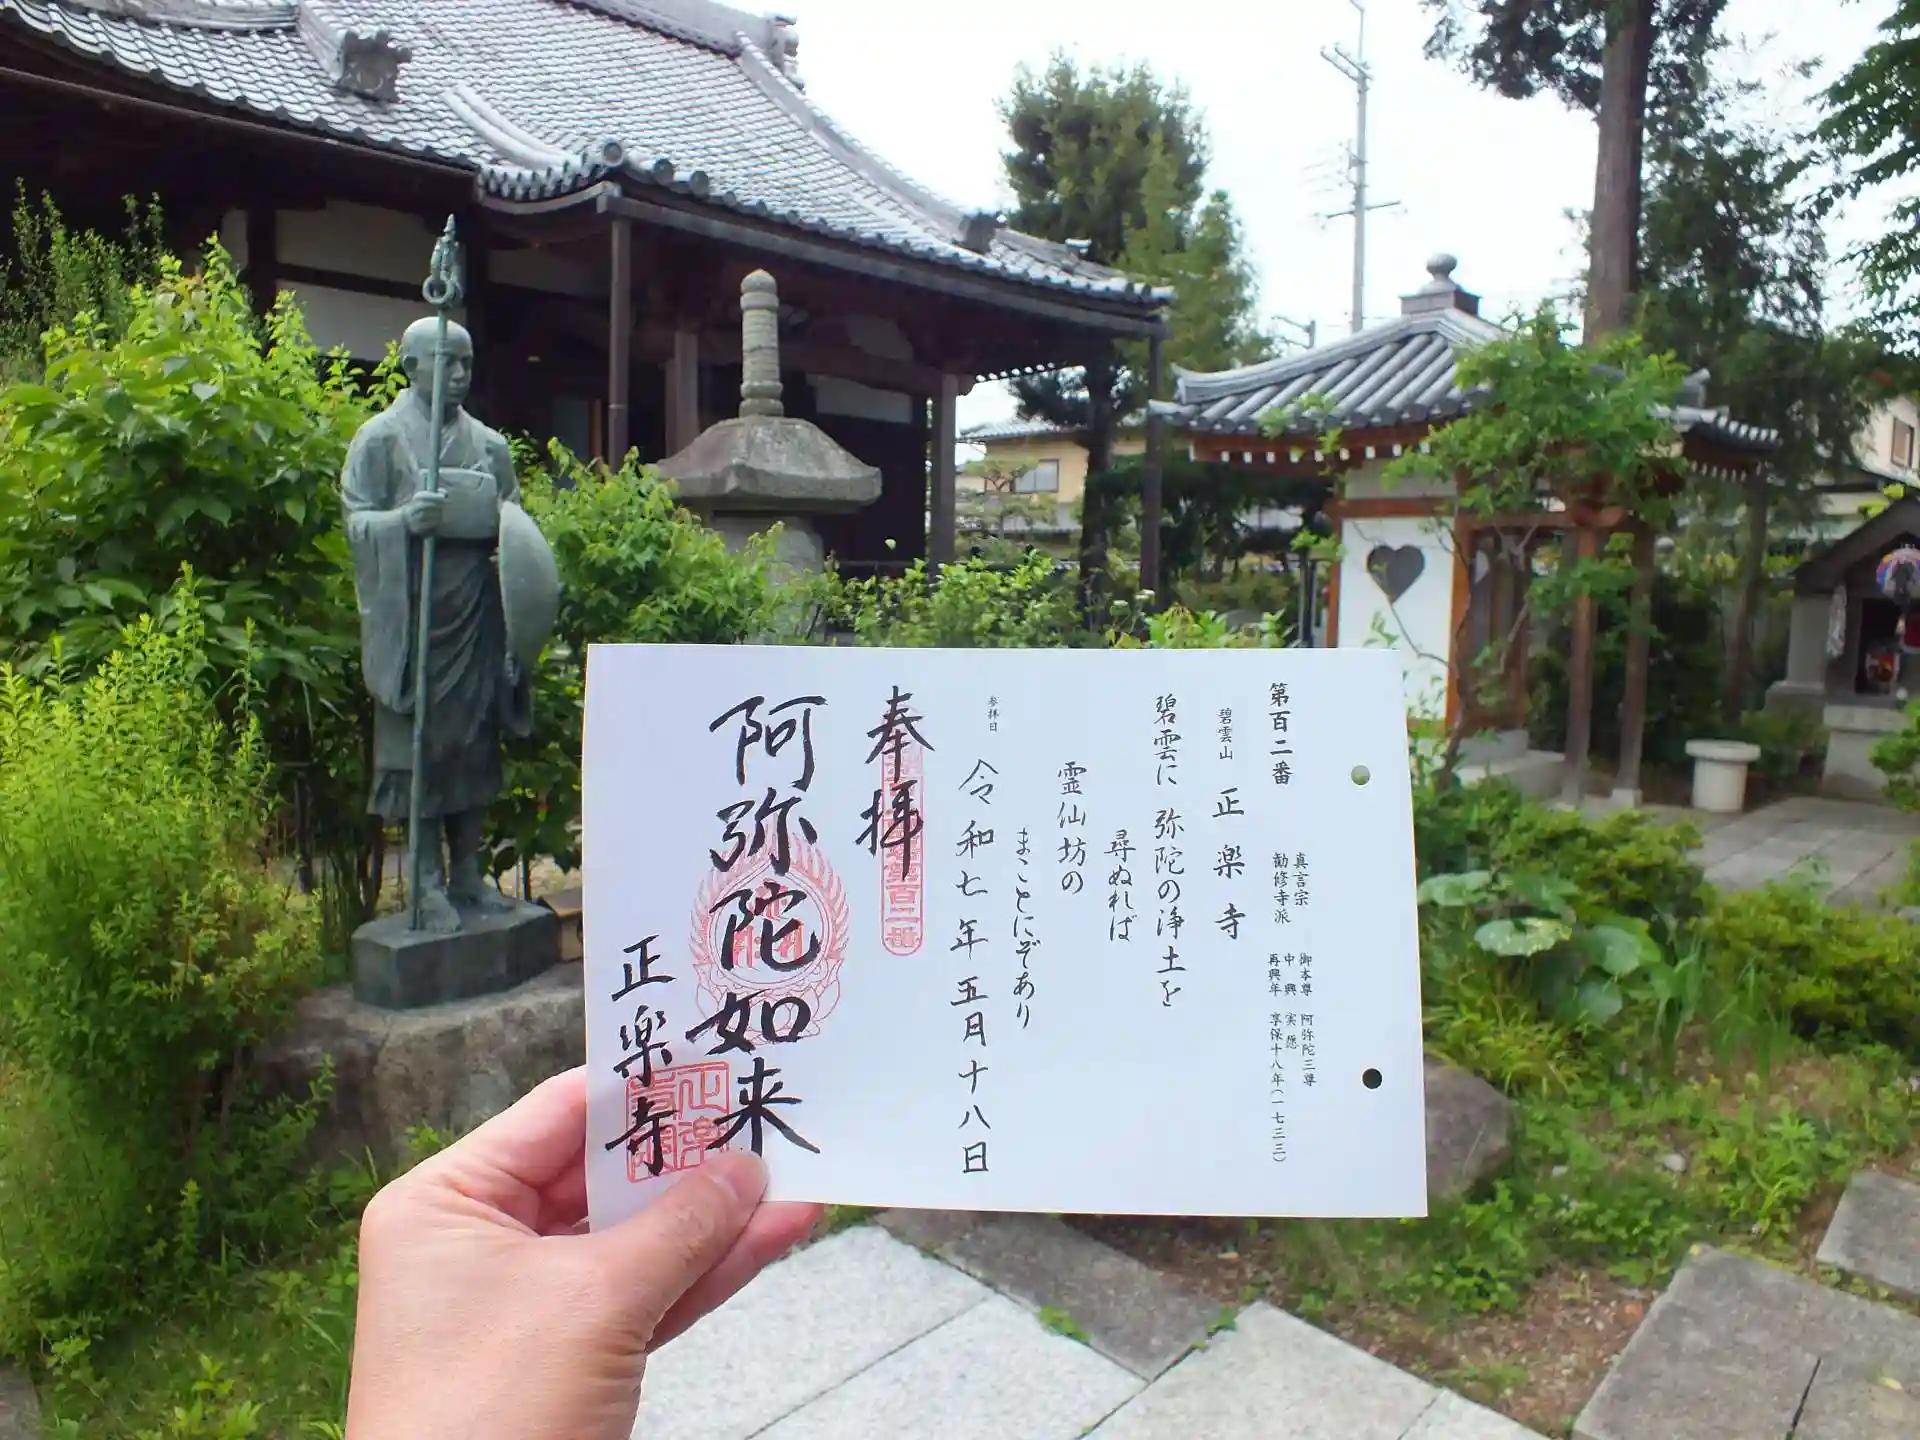 第百二番
真言宗
勧修寺派
御本尊 阿弥陀三尊
中興 実愿
再興年 享保十八年(一七三三)
碧雲山 正楽寺
碧雲に 弥陀の浄土を
尋ぬれば
霊仙坊の
まことにぞあり
参拝日
令和七年五月十八日
奉拝
第百二番
阿弥陀如来
正楽寺